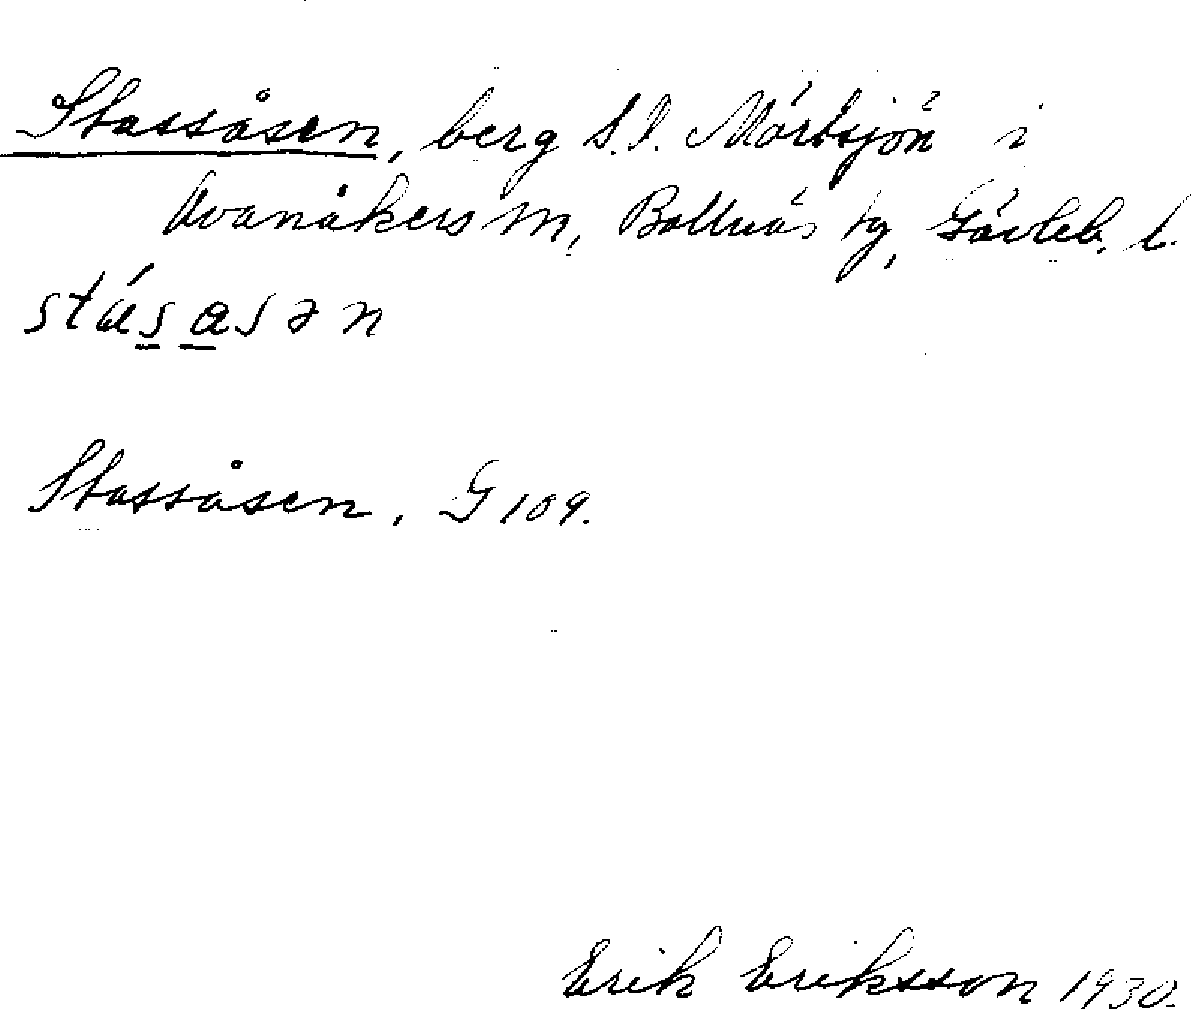 Stassåsen, berg S.I. Mörtsjön i
Svanåkers m, Bollnäs tg, Gävleb. l.
stásasən
Stassåsen, G 109.
Erik Eriksson 1930.